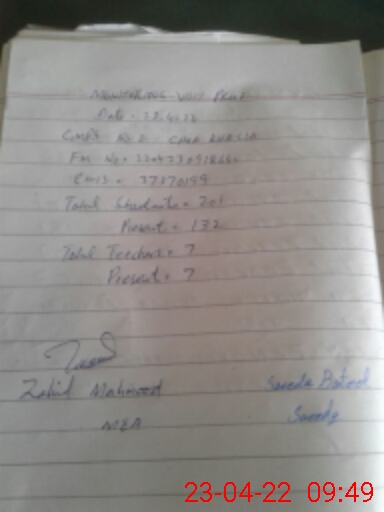 MONITORING VISIT PROOF
Date = 23.4.22
EMIS = 37370199
Total Students = 201
Present = 132
Total Teachers = 7
Present = 7
Zahid Mahmood
MEA
Saeeda Batool
Saeeda
23-04-22 09:49